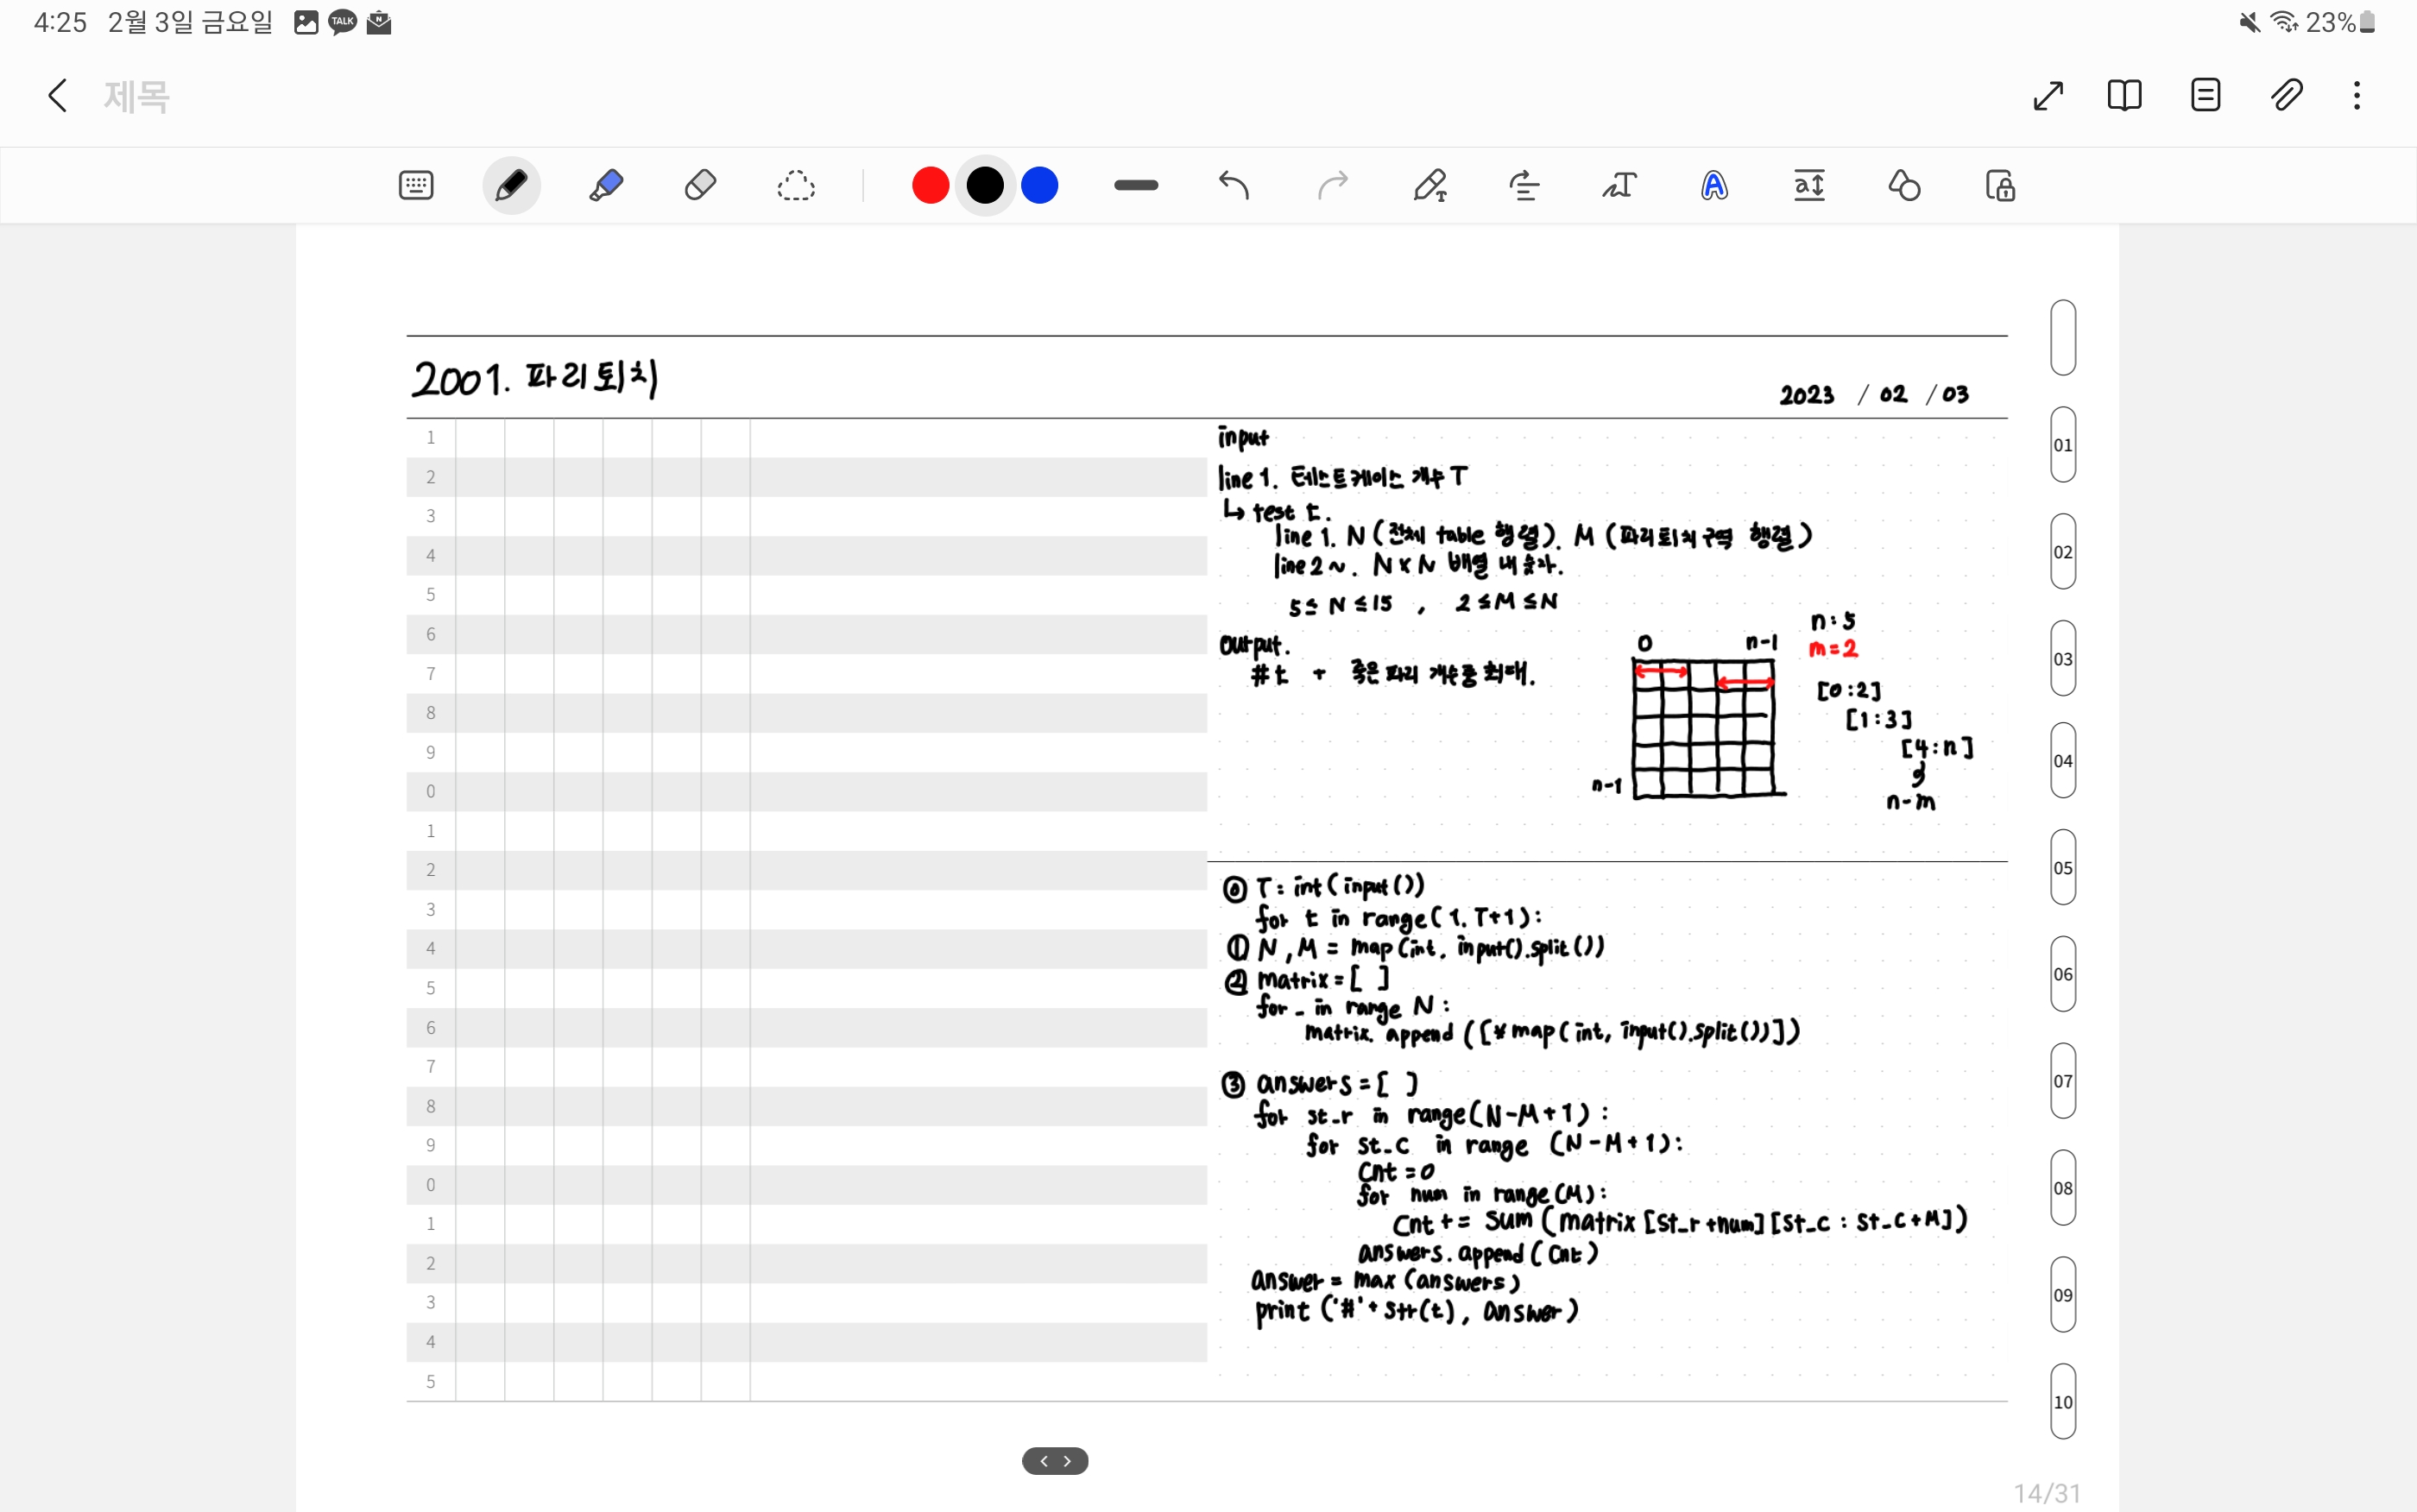 4:25 2월 3일 금요일 TALK N 23%
제목
2001. 파리퇴치
2023 / 02 / 03
1
2
3
4
5
6
7
8
9
0
1
2
3
4
5
6
7
8
9
0
1
2
3
4
5
input
line 1. 테스트케이스 개수 T
↳ test t.
line 1. N (전체 table 행렬). M (파리퇴치 구역 행렬)
line 2 ~. N x N 배열 내 숫자.
5 ≤ N ≤ 15 , 2 ≤ M ≤ N
Output.
#t + 죽은 파리 개수 중 최대.
0 n-1
n-1
n : 5
m = 2
[0:2]
[1:3]
[4:n]
n-m
⓪ T : int ( input ())
for t in range ( 1. T+1 ) :
① N , M = map (int. input().split())
② matrix = [ ]
for _ in range N :
matrix. append ([* map ( int, input().split())])
③ answers = [ ]
for st_r in range (N-M+1) :
for st_c in range (N-M+1) :
Cnt = 0
for num in range (M) :
Cnt += sum (matrix [st_r +num] [st_c : st_c+M])
answers. append ( Cnt )
answer = max (answers)
print ('#' + str(t) , answer )
01
02
03
04
05
06
07
08
09
10
14/31